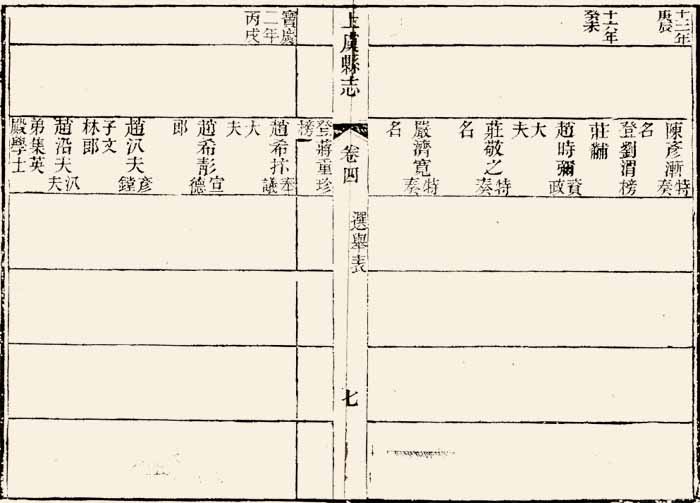 十三年
庚辰
十六年
癸未
陳彥漸特奏
名
登劉渭榜
莊黼
趙時彌資政
大夫
莊敬之特奏
名
嚴濟寬特奏
名
上虞縣志
卷四
選舉表
七
寶慶
二年
丙戌
登蔣重珍
榜
趙希抃奉議
大夫
趙希彭宣德
郎
趙汎夫彥鏜
子文
林郎
趙沿夫汎夫
弟集英
殿學士